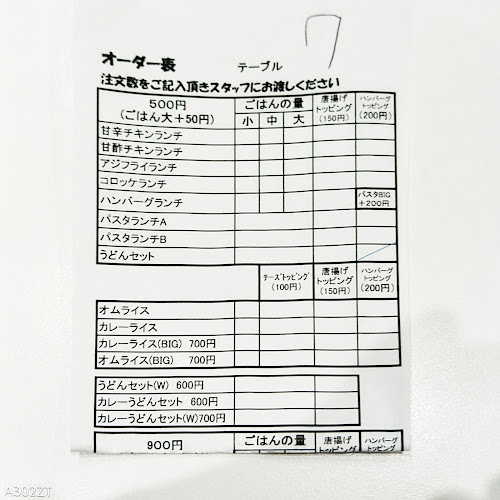 7
オーダー表 テーブル
注文数をご記入頂きスタッフにお渡しください
500円 ごはんの量 唐揚げ ハンバーグ
(ごはん大+50円) 小 中 大 トッピング トッピング
(150円) (200円)
甘辛チキンランチ
甘酢チキンランチ
アジフライランチ
コロッケランチ
ハンバーグランチ パスタBIG
+200円
パスタランチA
パスタランチB
うどんセット
チーズトッピング 唐揚げ ハンバーグ
(100円) トッピング トッピング
(150円) (200円)
オムライス
カレーライス
カレーライス(BIG) 700円
オムライス(BIG) 700円
うどんセット(W) 600円
カレーうどんセット 600円
カレーうどんセット(W)700円
900円 ごはんの量 唐揚げ ハンバーグ
トッピング トッピング
A302ZT